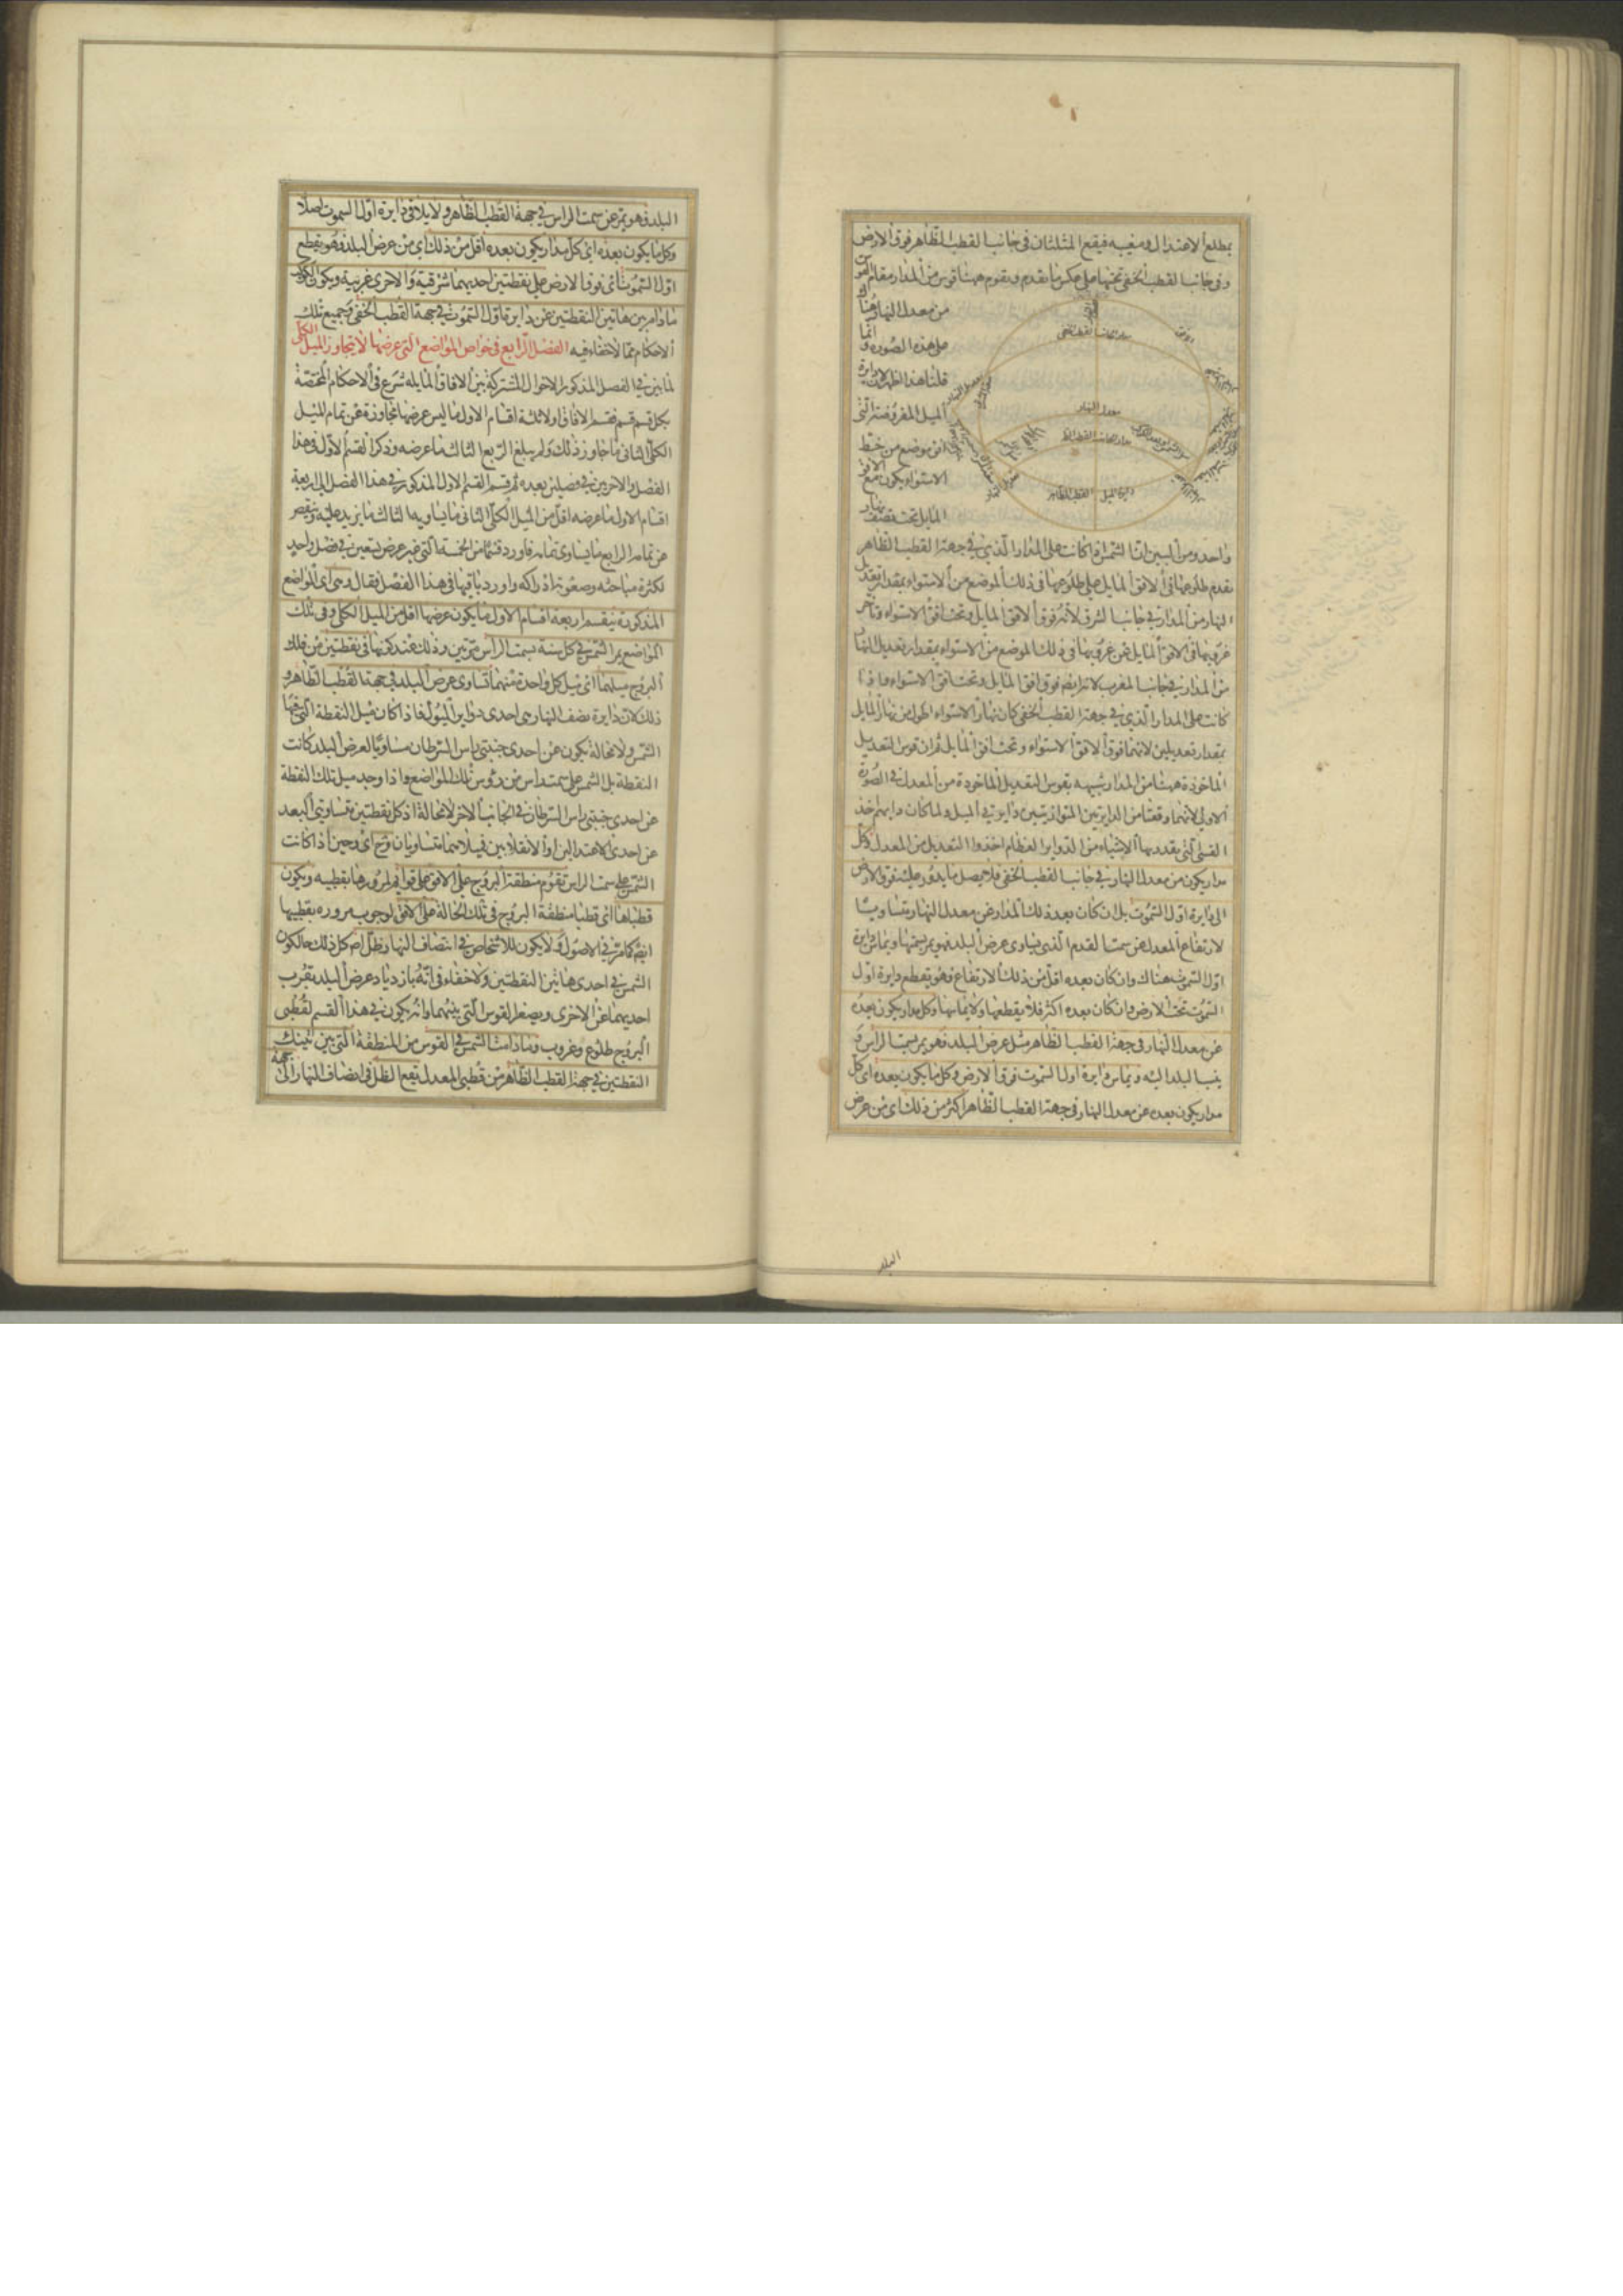 بمطلع الاعتدال ومغيبه فيقع المثلثان في جانب القطب الظاهر فوق الارض
وفي جانب القطب الخفي تحتها على عكس ما تقدم ويقوم ههنا قوس من المدار مقام القوس
من معدل النهار هناك
على هذه الصورة وانما
قلنا هذا الظهر لان دايرة
الميل المفروضة التي
افق موضع من خط
الاستواء يكون مع الافق
المايل تحت نصف نهار
الافق
مدار الجانب القطب الخفي
معدل النهار
واحد ومن البين ان الشمس اذا كانت على المدار الذي في جهة القطب الظاهر
تقدم طلوعها في الافق المايل على طلوعها في ذلك الموضع من الاستواء بمقدار تعديل
النهار من المدار في جانب الشرق لانه فوق الافق المايل وتحت افق الاستواء وتأخر
غروبها في الافق المايل عن غروبها في ذلك الموضع من الاستواء بمقدار تعديل النهار
من المدار في جانب المغرب لانه ايضا فوق افق المايل وتحت افق الاستواء واذا
كانت على المدار الذي في جهة القطب الخفي كان نهار الاستواء اطول من نهار المايل
بمقدار تعديلين لانهما فوق الافق الاستواء وتحت افق المايل ثم ان قوس التعديل
الماخوذة ههنا من المدار شبيهه بقوس التعديل الماخوذة من المعدل في الصورة
الاولى لانهما وقعتا من الدايرتين المتوازيتين بين دايرتي الميل ولما كان دابهم اخذ
القسى التي يقدر بها الاشياء من الدواير العظام اخذوا التعديل من المعدل وكل
مدار يكون من معدل النهار في جانب القطب الخفي فلا يصل ما يدور عليه فوق الارض
الى دايرة اول السموت بل ان كان بعد ذلك المدار عن معدل النهار مساويا
لارتفاع المعدل عن سمت القدم الذي يساوي عرض البلد فهو يمر بسمتها ويماس دايرة
اول السموت هناك وان كان بعده اقل من ذلك الارتفاع فهو يقطع دايرة اول
السموت تحت الارض وان كان بعده اكثر فلا يقطعها ولا يماسها وكل مدار يكون بعده
عن معدل النهار في جهة القطب الظاهر مثل عرض البلد فهو يمر بسمت الراس و
ينسب البلد اليه ويماس دايرة اول السموت فوق الارض وكل ما يكون بعده اى كل
مدار يكون بعده عن معدل النهار في جهة القطب الظاهر اكثر من ذلك اى من عرض
البلد
البلد فهو يمر عن سمت الراس في جهة القطب الظاهر ولا يلاقي دايرة اول السموت اصلا
وكل ما يكون بعده اى كل مدار يكون بعده اقل من ذلك اى من عرض البلد فهو يقطع
اول السموت اى فوق الارض على نقطتين احديهما شرقية والاخرى غربية ويكون الكوكب
ما دام بين هاتين النقطتين عن دايرة اول السموت في جهة القطب الخفي وجميع تلك
الاحكام مما لا خفاء فيه الفصل الرابع في خواص المواضع التي عرضها لا يتجاوز الميل الكلي
لما بين في الفصل المذكور الاحوال المشتركة بين الافاق المايله شرع في الاحكام المختصة
بكل قسم قسم فقسم الافاق اولا ثلثة اقسام الاول ما ليس عرضها مجاوزة عن تمام الميل
الكلي الثاني ما جاوز ذلك ولم يبلغ الربع الثالث ما عرضه وذكر القسم الاول في هذا
الفصل والاخرين في فصلين بعده ثم قسم القسم الاول المذكور في هذا الفصل الى اربعة
اقسام الاول ما عرضه اقل من الميل الكلي الثاني ما يساويه الثالث ما يزيد عليه وينقص
عن تمامه الرابع ما يساوي تمامه فاورد قسما من الخمسة التي غير عرض تسعين في فصل واحد
لكثرة مباحثه وصعوبة ادراكه واورد باقيها في هذا الفصل فقال وهي اى المواضع
المذكورة ينقسم اربعة اقسام الاول ما يكون عرضها اقل من الميل الكلي وفي تلك
المواضع يمر الشمس في كل سنة بسمت الراس مرتين وذلك عند كونها في نقطتين من فلك
البروج ميلهما اى ميل كل واحدة منهما تساوى عرض البلد في جهة القطب الظاهر و
ذلك لان دايرة نصف النهار هي احدى دواير الميول فاذا كان ميل النقطة التي فيها
الشمس ولا محالة يكون عن احدى جنبتي راس السرطان مساويا لعرض البلد كانت
النقطة بل الشمس على سمت راس من رؤوس تلك المواضع واذا وجد ميل تلك النقطة
عن احدى جنبتي راس السرطان في الجانب الاخر لا محالة اذ كل نقطتين متساويتي البعد
عن احدى الاعتدالين او الانقلابين فميلاهما متساويان وح اى وحين اذ كانت
الشمس على سمت الراس تقوم منطقة البروج على الافق على قوايم لمرورها بقطبيه ويكون
قطباها اى قطبا منطقة البروج في تلك الحالة على الافق لوجوب مروره بقطبيها
ايضا كما مر في الاصول ولا يكون للاشخاص في انتصاف النهار ظل اصلا كل ذلك حال كون
الشمس في احدى هاتين النقطتين ولا خفاء في انه بازدياد عرض البلد يقرب
احديهما عن الاخرى ويصغر القوس التي بينهما وانه يكون في هذا القسم لقطبى
البروج طلوع وغروب وما دامت الشمس في القوس من المنطقة التي بين تينك
النقطتين في جهة القطب الظاهر من قطبي المعدل يقع الظل في انصاف النهار الى جهة